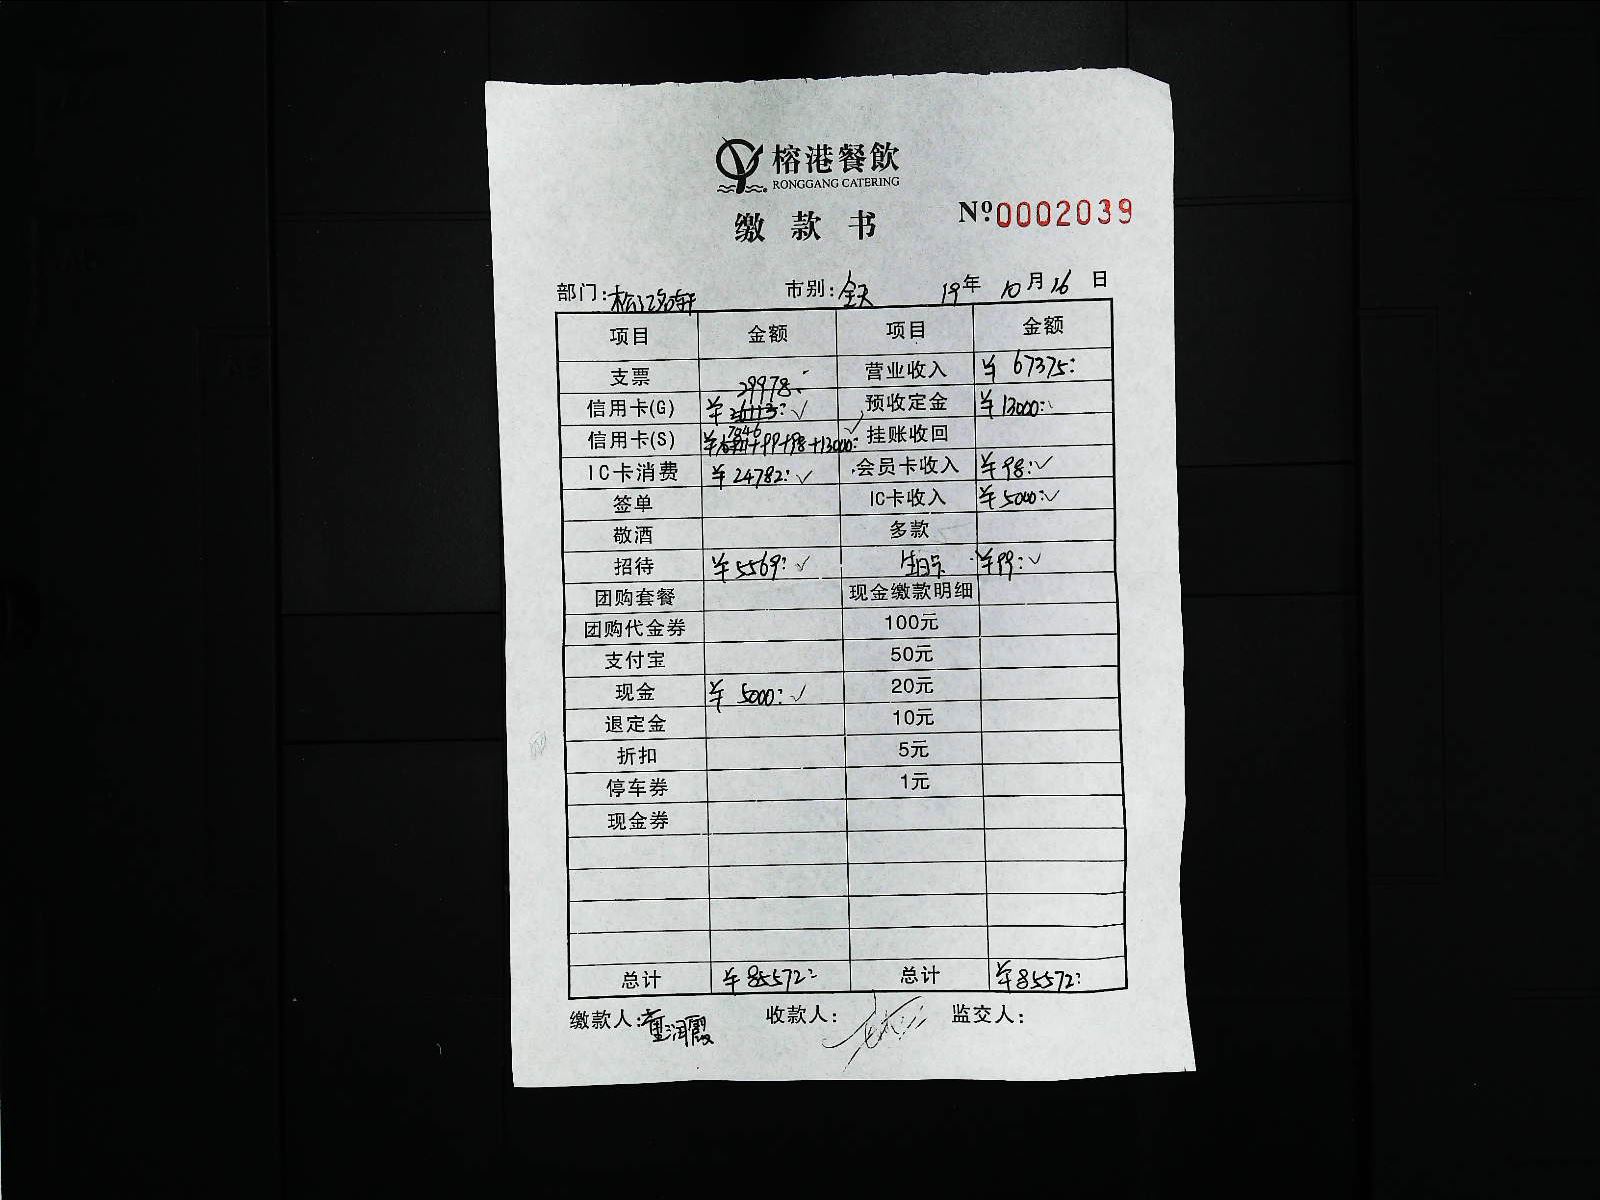 榕港餐飲
RONGGANG CATERING
缴款书
Nº0002039
部门: 市别:全天 19年 10月 16日
项目 金额 项目 金额
支票 营业收入 ¥ 67375:
信用卡(G) ¥ 29978: ✓ 预收定金 ¥13000:
信用卡(S) ¥7046+99+98+13000: ✓ 挂账收回
IC卡消费 ¥24782: ✓ 会员卡收入 ¥98: ✓
签单 IC卡收入 ¥5000: ✓
敬酒 多款
招待 ¥5569: ✓ 生日卡 ¥99: ✓
团购套餐 现金缴款明细
团购代金券 100元
支付宝 50元
现金 ¥ 5000: ✓ 20元
退定金 10元
折扣 5元
停车券 1元
现金券
总计 ¥85572: 总计 ¥85572:
缴款人:童润霞 收款人: 监交人: